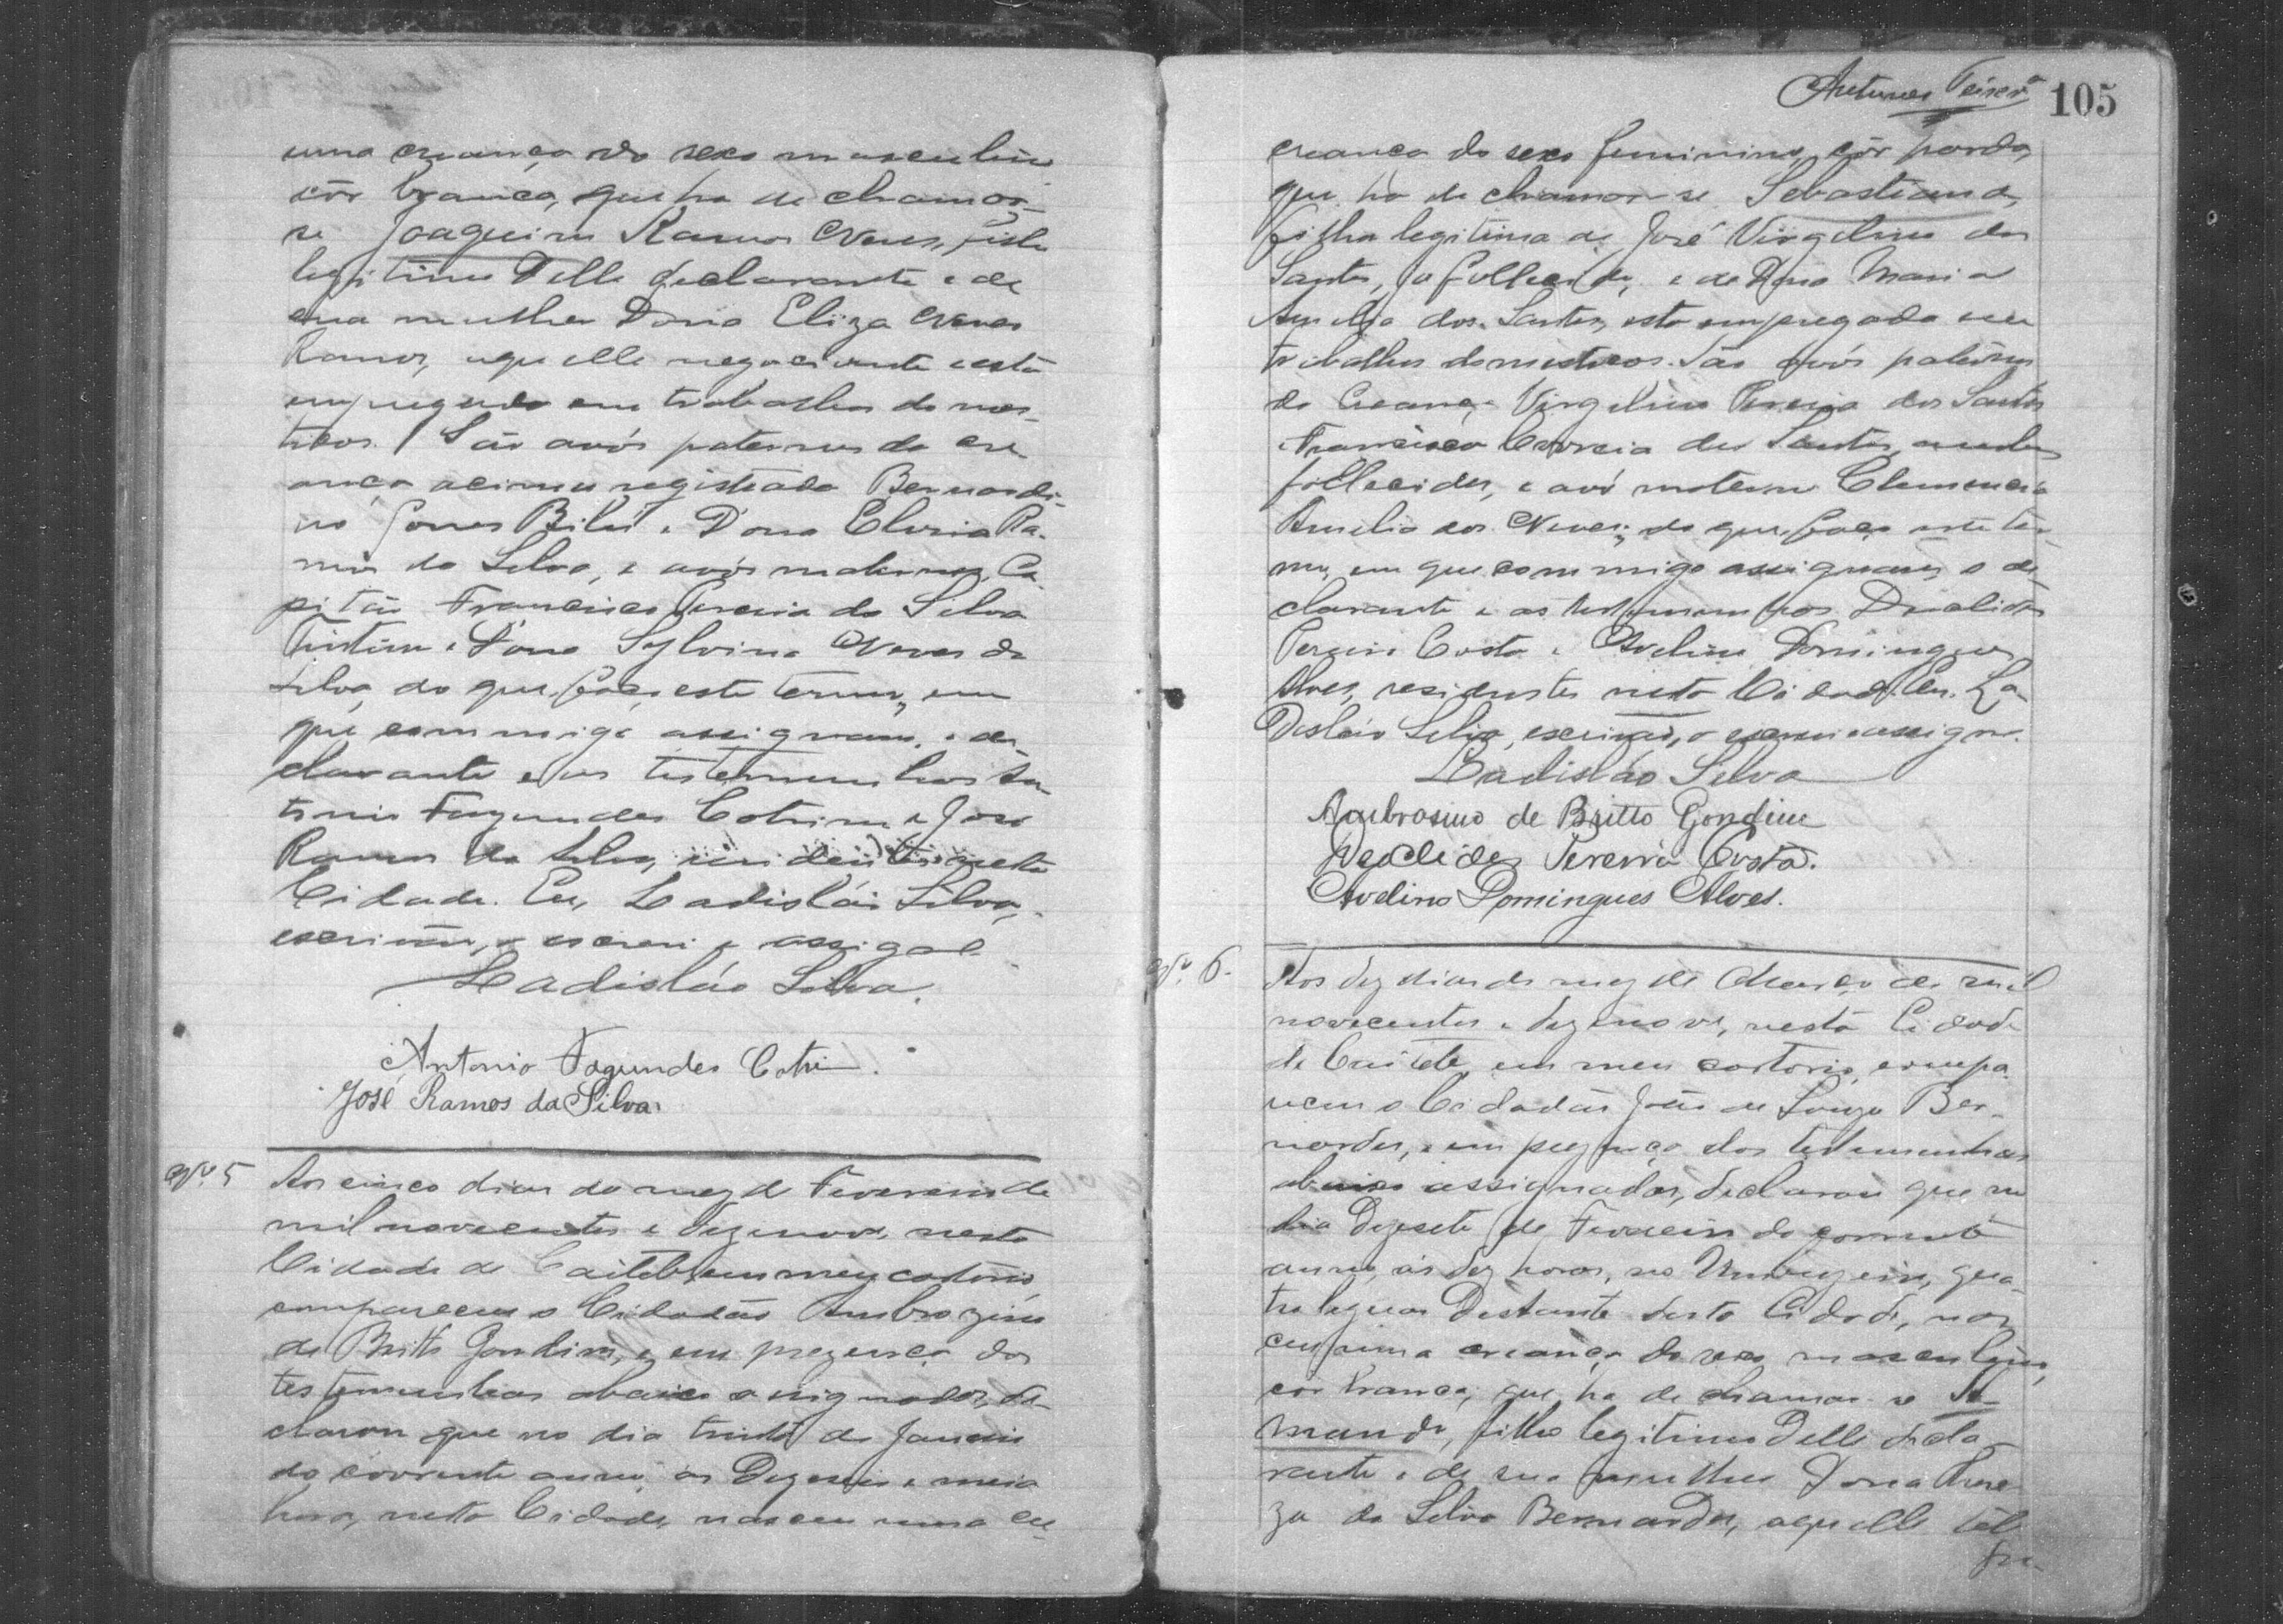 uma creança do sexo masculino
côr branca, que ha de chamar-
se Joaquim Ramos Neves, filho
legitimo delle declarante e de
sua mulher Dona Eliza Neves
Ramos, aquelle negociante e esta
empregada em trabalhos domes-
ticos. São avós paternos da cre-
ança acima registrada Bernardi-
no Gomes e Dona Ra-
mos da Silva, e avós maternos, Ca-
pitão Francisco Pereira da Silva
e Dona Sylvina Neves da
Silva, do que faço este termo, em
que commigo assignam, o de-
clarante e as testemunhas An-
tonio Fagundes Cotrim e José
Ramos da Silva, residentes nesta
Cidade. Eu, Ladisláo Silva,
escrivão, o escrevi e assigno.
Ladisláo Silva.
Antonio Fagundes Cotrim.
José Ramos da Silva.
Nº 5
Aos cinco dias do mez de Fevereiro de
mil novecentos e dezenove, nesta
Cidade de Caiteté, em meu cartorio,
compareceu o Cidadão Ambrozino
de Britto Gondim, e em prezença das
testemunhas abaixo assignadas, de-
clarou que no dia trinta de Janeiro
do corrente anno, as Dezeseis e meia
hora, nesta Cidade, nasceu uma cre-
Antunes Teixra
105
creança do sexo feminino, côr parda,
que ha de chamar-se Sebastiana,
filha legitima de José Virgelino dos
Santos, ja fallecido, e de Dona Maria
Amelia dos Santos, esta empregada em
trabalhos domesticos. São avós paternos
da Creança Virgelino Pereira dos Santos
Francisca Correia dos Santos, ambos
fallecidos, e avó materna Clemencia
Amelia das Neves; do que faço este ter-
mo, em que commigo assignam, o de-
clarante e as testemunhas Deoclides
Pereira Costa e Avelino Domingues
Alves, residentes nesta Cidade. Eu, La-
disláo Silva, escrivão, o escrevi e assigno.
Ladisláo Silva
Ambrosino de Britto Gondim
Deoclides Pereira Costa.
Avelino Domingues Alves.
Nº 6.
Aos dez dias do mez de Março de mil
novecentos e dezenove, nesta Cidade
de Caiteté, em meu cartorio, compa-
receu o Cidadão João de Souza Ber-
nardes, e em prezença das testemunhas
abaixo assignadas, declarou que no
dia Dezesete de Fevereiro do corrente
anno, ás dez horas, no Umbuzeiro, qua-
tro leguas Distante desta Cidade, nas-
ceu uma creança do sexo masculino,
côr branca, que ha de chamar-se A-
mando, filho legitimo delle decla-
rante e de sua mulher Dona There-
za da Silva Bernardes, aquelle